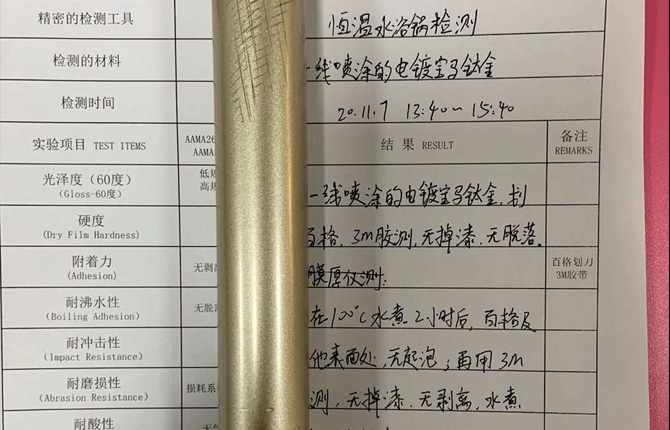 精密的检测工具 恒温水浴锅检测
检测的材料 一线喷涂的电镀宝马钛金
检测时间 20.11.7 13:40~15:40
实验项目 TEST ITEMS AAMA26 AAMA 结果 RESULT 备注 REMARKS
光泽度（60度） 低 高
(Gloss-60度) 一线喷涂的电镀宝马钛金，划
硬度
(Dry Film Hardness) 百格，3m胶测，无掉漆，无脱落。
附着力 无剥 膜厚仪测：百格划刀
(Adhesion) 3M胶带
耐沸水性 无脱 在100℃水煮2小时后，百格及
(Boiling Adhesion)
耐冲击性 他表面处，无起泡；再用3M
(Impact Resistance)
耐磨损性 损耗系 测，无掉漆，无剥离，水煮
(Abrasion Resistance)
耐酸性